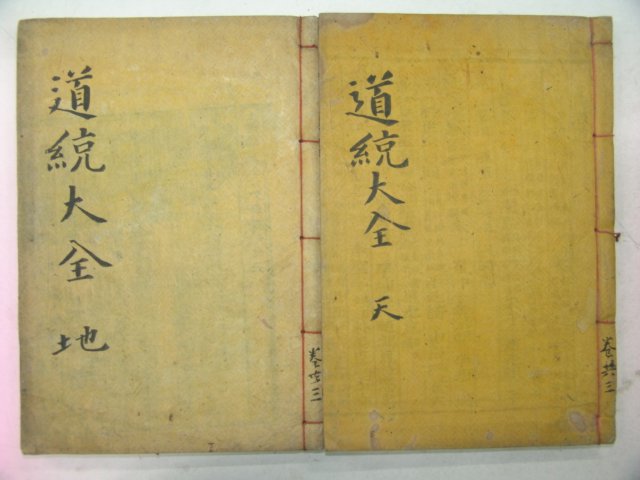 道統大全 天
卷共三
道統大全 地
卷共三